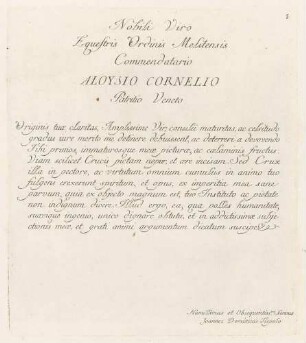 Nobili Viro
Equestris Ordinis Melitensis
Commendatario
ALOYSIO CORNELIO
Patritio Veneto
Originis tuæ claritas, Amplissime Vir, consilii maturitas, ac celsitudo
gradus iure merito me detinere debuissent, ac deterrere a devovendo
Tibi primos, immaturosque meæ picturæ, ac calaminis fructus.
Viam scilicet Crucis pictam nuper, et ære incisam. Sed Crux
illa in pectore, ac virtutum omnium cumulus in animo tuo
fulgens erexerunt spiritum, et opus, ex imperita mea sane
parvum, quia ex objecto magnum est, tuo Instituto ac pietate
non indignum duxere. Illud ergo, ea, qua polles humanitate,
tuaque ingenuo, unice dignare obtutu, et in addictissimæ subje-
ctionis meæ, et grati animi argumentum dicatum suscipe
Humillimus et Obsequentiss. Servus
Joannes Dominicus Tiepolo